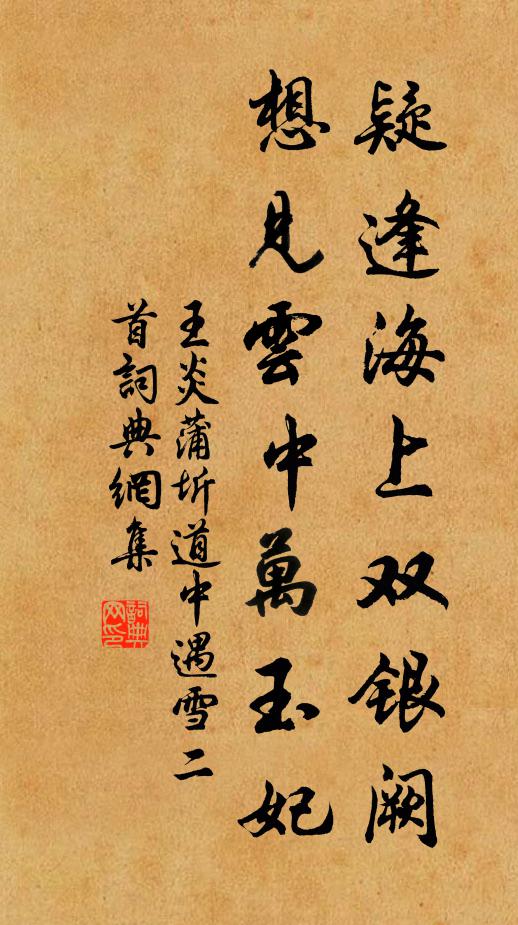 疑逢海上双银阙
想見雲中萬玉妃
王炎蒲圻道中遇雪二
首詞典網集
詞典
网印